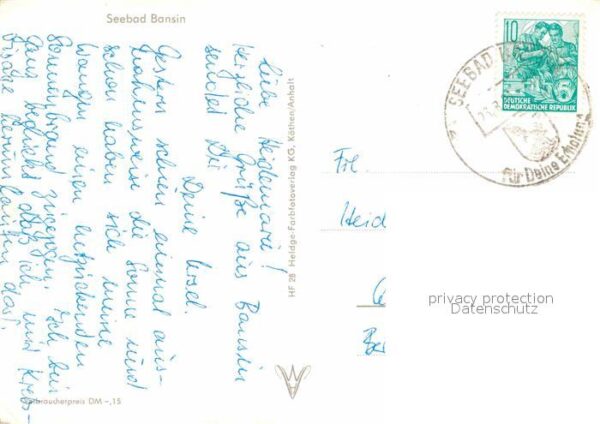 Seebad Bansin
Liebe Heidemarie!
Herzliche Grüße aus Bansin
sendet Dir
Deine Ursel.
Gestern schien einmal aus-
nahmsweise die Sonne und
schon haben sich meine
Wangen einen
Sonnenbrand zugezogen. Ich bin
ganz daß ich, und Krebs-
HF 28 Heldge-Farbfotoverlag KG, Köthen/Anhalt
Verbraucherpreis DM -,15
10
DEUTSCHE
DEMOKRATISCHE REPUBLIK
SEEBAD
für Deine Erholung
Frl.
Heid
privacy protection
Datenschutz